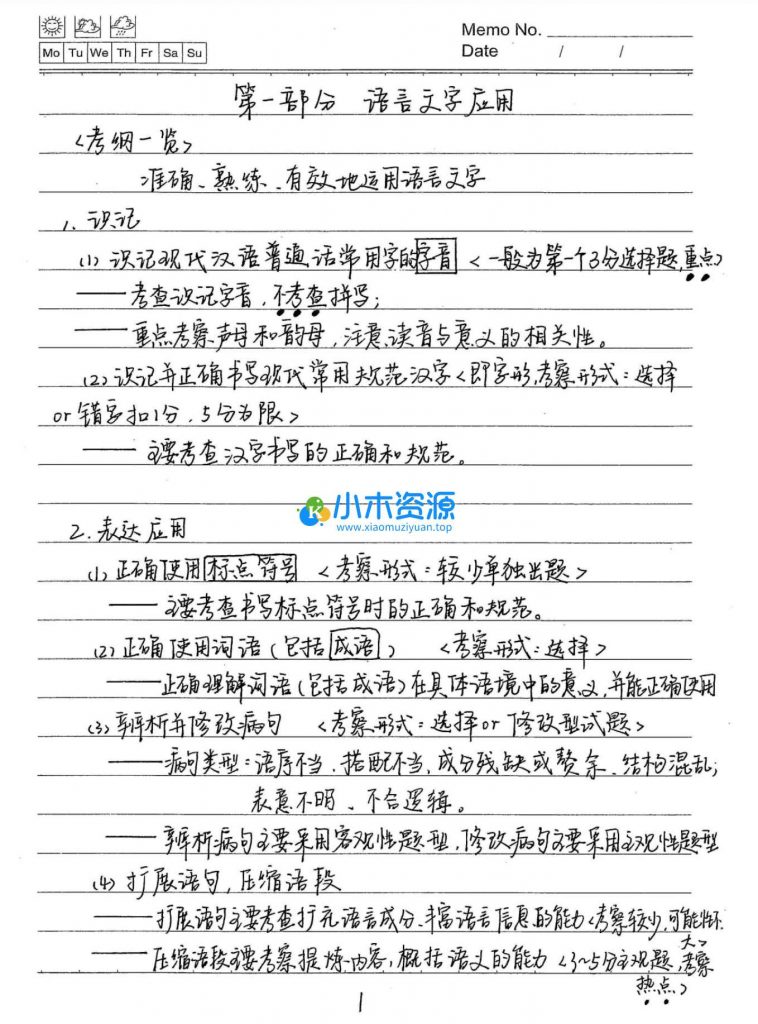 Memo No.
Mo Tu We Th Fr Sa Su
Date / /
第一部分 语言文字应用
<考纲一览>
准确、熟练、有效地运用语言文字
1. 识记
(1) 识记现代汉语普通话常用字的字音 <一般为第一个3分选择题,重点>
——考查识记字音,不考查拼写;
——重点考察声母和韵母,注意读音与意义的相关性。
(2) 识记并正确书写现代常用规范汉字<即字形,考察形式:选择
or 错字扣1分,5分为限>
——主要考查汉字书写的正确和规范。
K 小木资源
www.xiaomuziyuan.top
2. 表达应用
(1) 正确使用标点符号 <考察形式:较少单独出题>
——主要考查书写标点符号时的正确和规范。
(2) 正确使用词语(包括成语) <考察形式:选择>
——正确理解词语(包括成语)在具体语境中的意义,并能正确使用
(3) 辨析并修改病句 <考察形式:选择or 修改型试题>
——病句类型:语序不当、搭配不当、成分残缺或赘余、结构混乱;
表意不明、不合逻辑。
——辨析病句主要采用客观性题型,修改病句主要采用主观性题型
(4) 扩展语句,压缩语段
——扩展语句主要考查扩充语言成分、丰富语言信息的能力<考察较少,可能性不
大>
——压缩语段主要考察提炼内容,概括语义的能力<3~5分主观题,考察
热点>
1